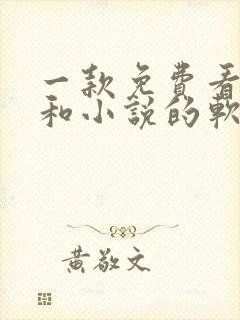 一款免费看
和小说的軟
黄敬文